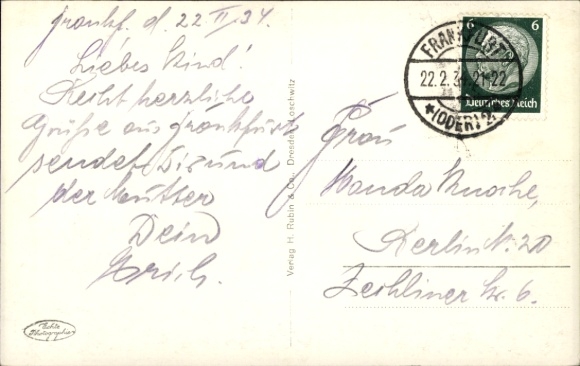 Frankf. d. 22. II. 34.
Liebes Kind!
Recht herzliche
Grüße aus Frankfurt
sendet Dir und
der Mutter
Dein
Erich.
Echte
Photographie
Verlag H. Rubin & Co., Dresden-Loschwitz
FRANKFURT
22.2.34 21-22
* (ODER) 2 *
6 6
Deutsches Reich
Frau
Wanda
Berlin N. 20
Zechliner Str. 6.